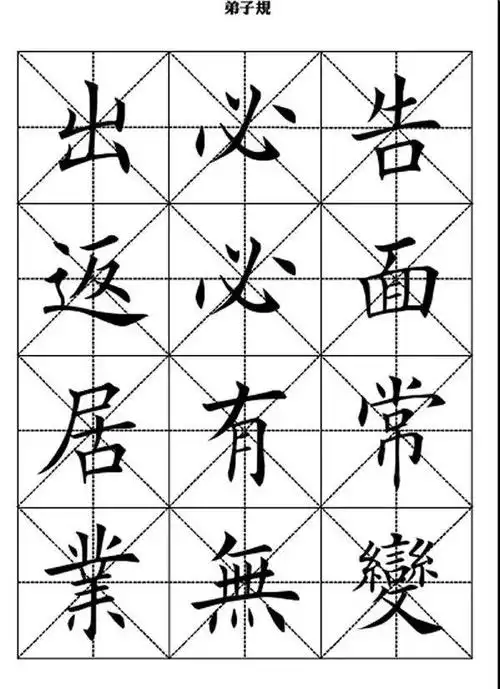 弟子規
出必告
返必面
居有常
業無變